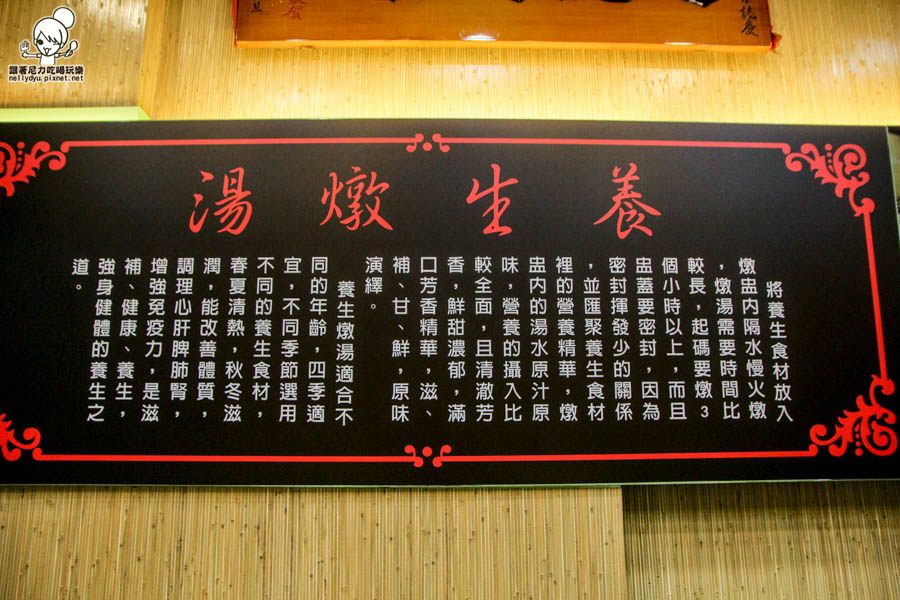 跟著尼力吃喝玩樂
nellydyu.pixnet.net
養生燉湯
將養生食材放入
燉盅內隔水慢火燉
,燉湯需要時間比
較長,起碼要燉3
個小時以上,而且
盅蓋要密封,因為
密封揮發少的關係
,並匯聚養生食材
裡的營養精華,燉
盅內的湯水原汁原
味,營養的攝入比
較全面,且清澈芳
香,鮮甜濃郁,滿
口芳香精華,滋、
補、甘、鮮,原味
演繹。
養生燉湯適合不
同的年齡,四季適
宜,不同季節選用
不同的養生食材,
春夏清熱,秋冬滋
潤,能改善體質,
調理心肝脾肺腎,
增強免疫力,是滋
補、健康、養生,
強身健體的養生之
道。